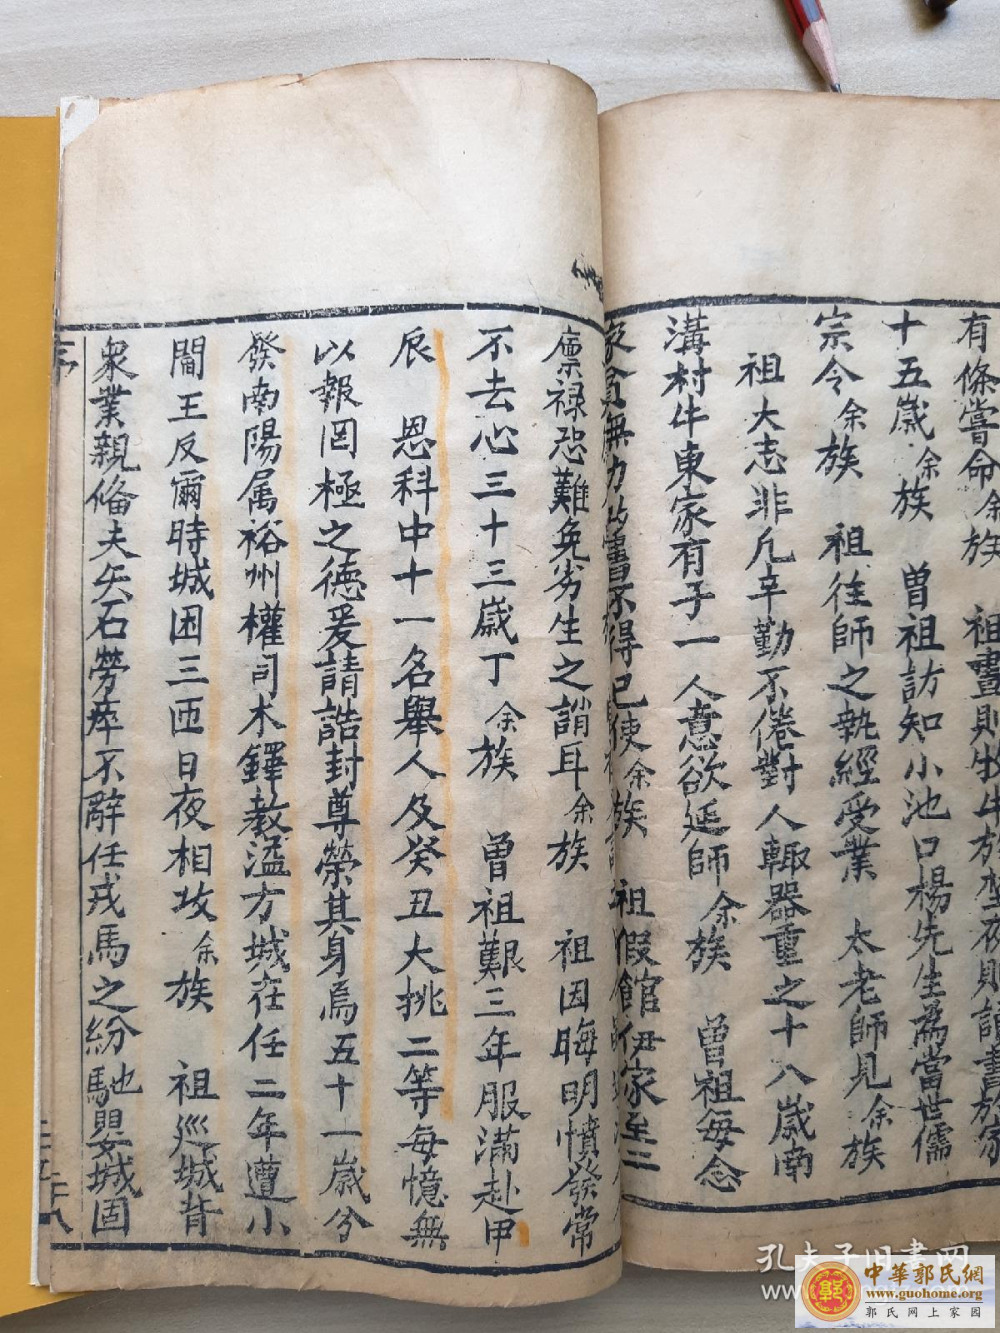 有條嘗命余族　祖晝則牧牛於埜夜則讀書於家
十五歲余族　曾祖訪知小池口楊先生為當世儒
宗令余族　祖往師之執經受業　太老師見余族
祖大志非凡辛勤不倦對人輙器重之十八歲南
溝村牛東家有子一人意欲延師余族　曾祖每念
家貧無力	讀書不得已使余族　祖假館伊家至二
廩祿恐難免劣生之誚耳余族　祖因晦明憤發常
不去心三十三歲丁余族　曾祖艱三年服滿赴甲
辰　恩科中十一名舉人及癸丑大挑二等每憶無
以報罔極之德爰請誥封尊榮其身焉五十一歲分
發南陽属裕州權司木鐸教溢方城在任二年遭小
閻王反爾時城困三匝日夜相攻余族　祖巡城背
衆業親偹夫矢石勞瘁不辭任戎馬之紛馳嬰城固
序
孔夫子旧书网
中華郭氏網
www.guohome.org
郭氏网上家园
郭